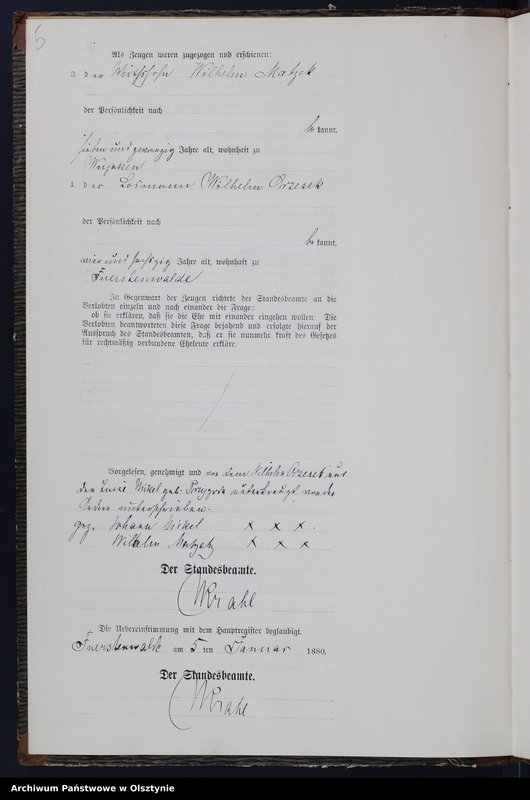 5
Als Zeugen waren zugezogen und erschienen:
3. d er Wirthssohn Wilhelm Matzek
der Persönlichkeit nach
be kannt,
sieben und zwanzig Jahre alt, wohnhaft zu
4. d er Losmann Wilhelm Orzesek
der Persönlichkeit nach
be kannt,
vier und sechszig Jahre alt, wohnhaft zu
Fuerstenwalde
In Gegenwart der Zeugen richtete der Standesbeamte an die
Verlobten einzeln und nach einander die Frage:
ob sie erklären, daß sie die Ehe mit einander eingehen wollen. Die
Verlobten beantworteten diese Frage bejahend und erfolgte hierauf der
Ausspruch des Standesbeamten, daß er sie nunmehr kraft des Gesetzes
für rechtmäßig verbundene Eheleute erkläre.
Vorgelesen, genehmigt und von dem Wilhelm Orzesek und
der Nickel geb. unterkreuzt von den
unterschrieben.
gez. Johann Nickel x x x.
Wilhelm Matzek x x x
Der Standesbeamte.
Krahl
Die Uebereinstimmung mit dem Hauptregister beglaubigt.
Fuerstenwalde am 5 ten Januar 1880.
Der Standesbeamte.
Krahl
Archiwum Państwowe w Olsztynie